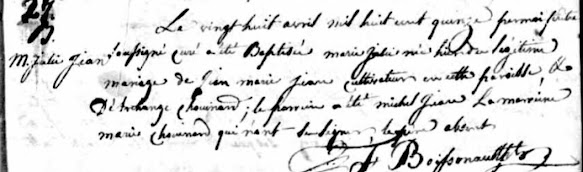 27
B.
M. Julie Jean
Le vingt huit avril mil huit cent quinze par moi prêtre
soussigné curé a été Baptisée marie Julie née hier du légitime
mariage de Jean marie Jeane cultivateur en cette paroisse, &
D'Archange chouinard; le parrein a été michel Jeane La marreine
marie chouinard qui n'ont su signer, le père absent
Boissonnault ptr